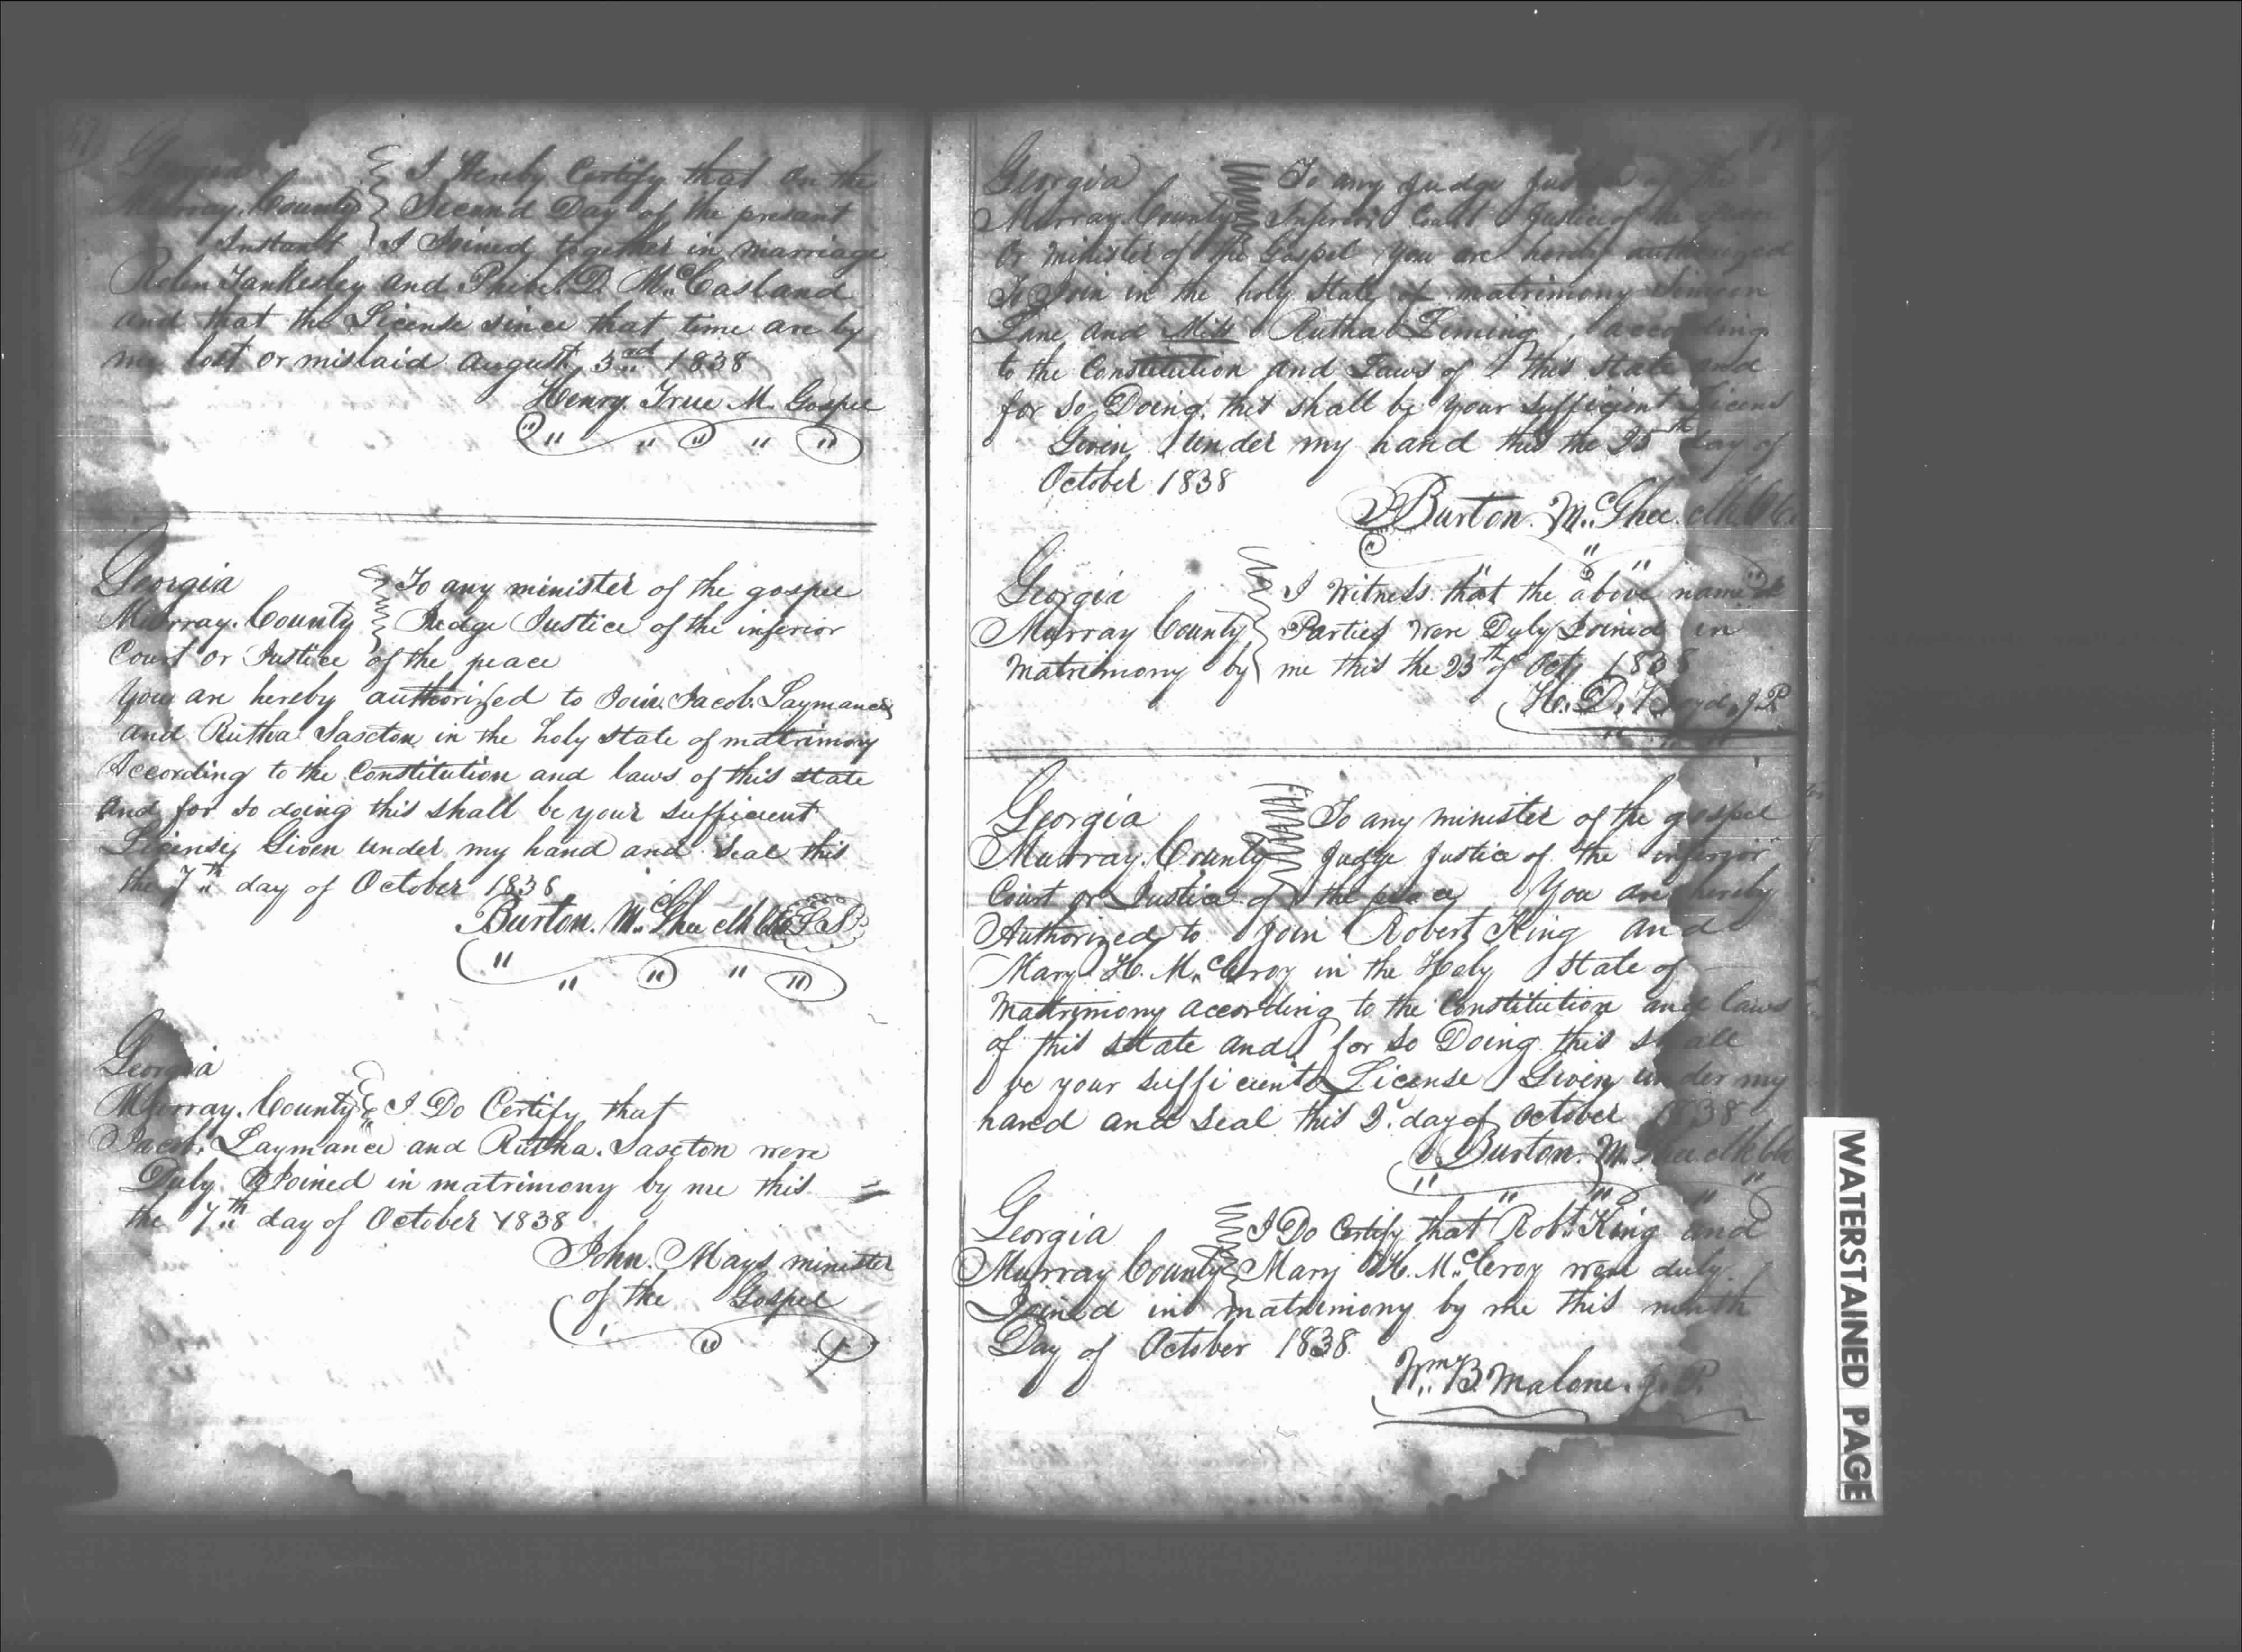 Georgia
Murray County
I Hereby Certify that on the
Second Day of the present
Instant I Joined together in marriage
and Phebe D. McCasland
and that the License since that time are by
me lost or mislaid August 3rd 1838
Henry True M. Gospel
Georgia
Murray County
To any minister of the gospel
Judge Justice of the inferior
Court or Justice of the peace
you are hereby authorized to Join Jacob Laymance
and Rutha Sascton in the holy state of matrimony
According to the Constitution and laws of this state
and for so doing this shall be your sufficient
License Given under my hand and Seal this
the 7th day of October 1838
Burton McGhee clk L S
Georgia
Murray County I Do Certify that
Jacob Laymance and Rutha Sascton were
Duly Joined in matrimony by me this
the 7th day of October 1838
John Mays minister
of the Gospel
Georgia
Murray County
To any Judge Justice of the
Inferior Court Justice of the
Or minister of the Gospel you are hereby authorized
To Join in the holy State of matrimony Simeon
Lane and Miss Rutha according
to the Constitution and Laws of this State and
for so Doing this shall be your sufficient License
Given under my hand this the 25th day of
October 1838
Burton McGhee clk
Georgia
Murray County
I Witness that the above named
Parties were Duly Joined in
matrimony by me this the 25th of Oct 1838
H. D. J.P.
Georgia
Murray County
To any minister of the gospel
Judge Justice of the inferior
Court or Justice of the peace You are hereby
Authorized to Join Robert King and
Mary H. McCleroy in the Holy State of
Matrimony according to the Constitution and laws
of this state and for so Doing this shall
be your sufficient License Given under my
hand and Seal this 2d day of October 1838
Burton McGhee clk
Georgia
Murray County
I Do Certify that Robt King and
Mary H. McCleroy were duly
Joined in matrimony by me this ninth
Day of October 1838
Wm B. Malone J. P.
WATERSTAINED PAGE